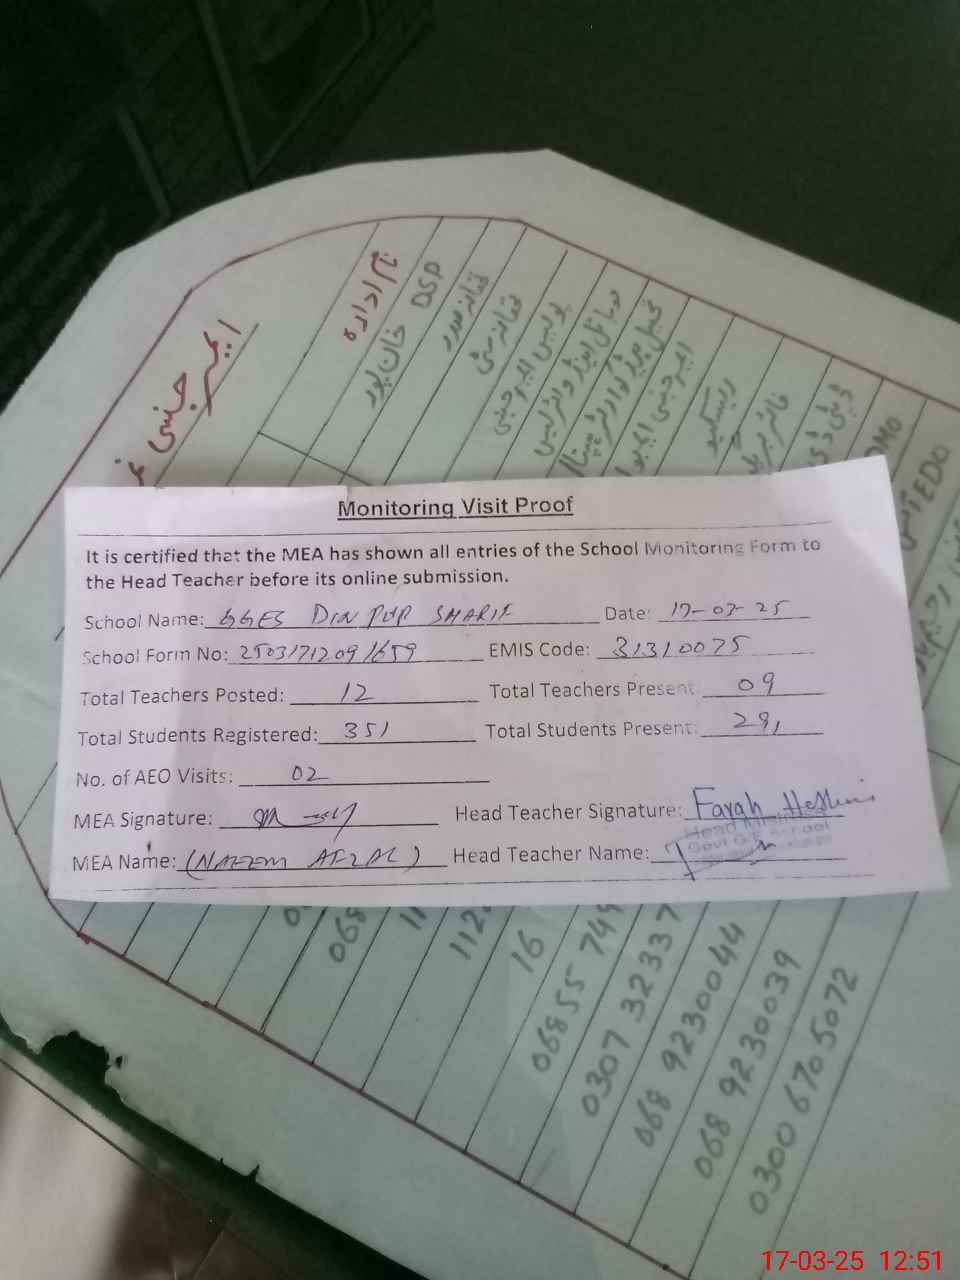 ایمرجنسی
نام ادارہ
خان پور DSP
تھانہ صدر
تھانہ سٹی
پولیس ایمرجنسی
ریسکیو
فائر بریگیڈ
EDO
Monitoring Visit Proof
It is certified that the MEA has shown all entries of the School Monitoring Form to
the Head Teacher before its online submission.
School Name: GGES DIN PUR SHARIF Date: 17-03-25
School Form No: 25031712091659 EMIS Code: 31310075
Total Teachers Posted: 12 Total Teachers Present: 09
Total Students Registered: 351 Total Students Present: 291
No. of AEO Visits: 02
MEA Signature: Head Teacher Signature: Farah
MEA Name: (NAEEM AFZAL) Head Teacher Name:
Head Mistress
Govt G.E School
068
11
112
16
06855 749
0307 32337
068 9230044
068 9230039
0300 6705072
17-03-25 12:51